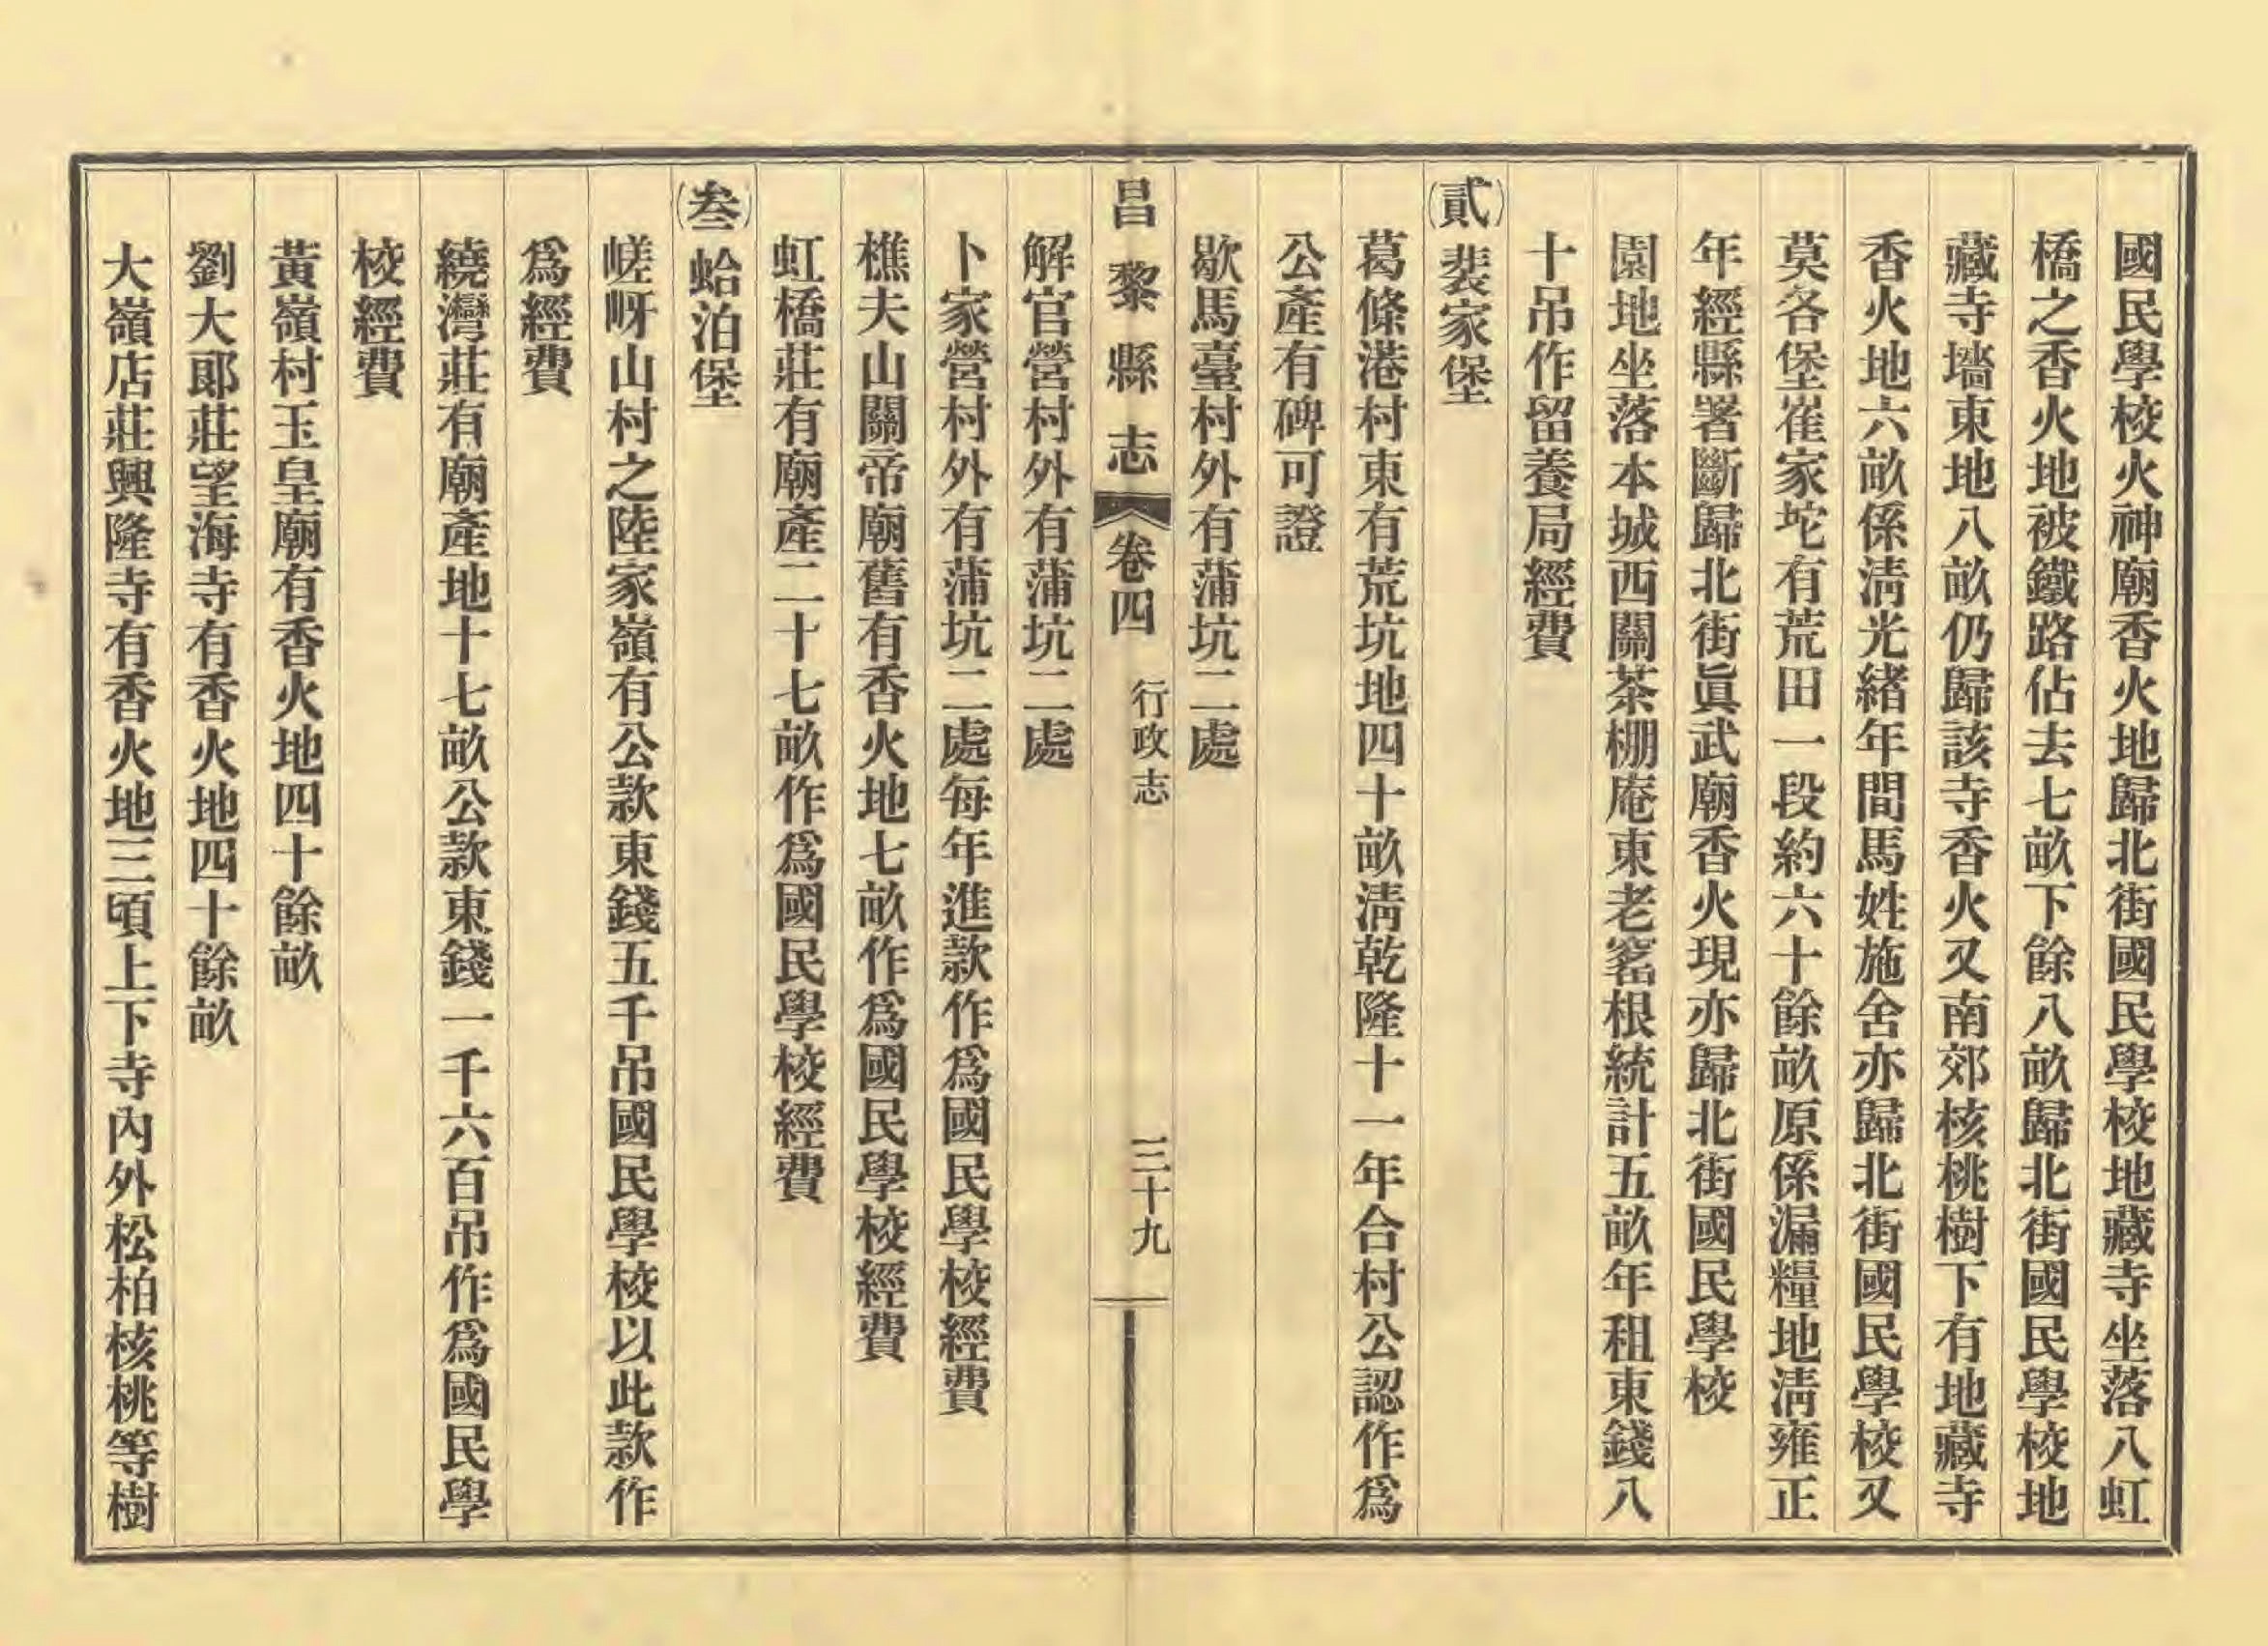 國民學校火神廟香火地歸北街國民學校地藏寺坐落八虹
橋之香火地被鐵路佔去七畝下餘八畝歸北街國民學校地
藏寺墻東地八畝仍歸該寺香火又南郊核桃樹下有地藏寺
香火地六畝係淸光緒年間馬姓施舍亦歸北街國民學校又
莫各堡崔家坨有荒田一段約六十餘畝原係漏糧地淸雍正
年經縣署斷歸北街眞武廟香火現亦歸北街國民學校
園地坐落本城西關茶棚庵東老窰根統計五畝年租東錢八
十吊作留養局經費
(貳)裴家堡
葛條港村東有荒坑地四十畝淸乾隆十一年合村公認作爲
公產有碑可證
歇馬臺村外有蒲坑二處
昌黎縣志 卷四 行政志 三十九
解官營村外有蒲坑二處
卜家營村外有蒲坑二處每年進款作爲國民學校經費
樵夫山關帝廟舊有香火地七畝作爲國民學校經費
虹橋莊有廟產二十七畝作爲國民學校經費
(叁)蛤泊堡
嵯岈山村之陸家嶺有公款東錢五千吊國民學校以此款作
爲經費
繞灣莊有廟產地十七畝公款東錢一千六百吊作爲國民學
校經費
黃嶺村玉皇廟有香火地四十餘畝
劉大郎莊望海寺有香火地四十餘畝
大嶺店莊興隆寺有香火地三頃上下寺內外松柏核桃等樹